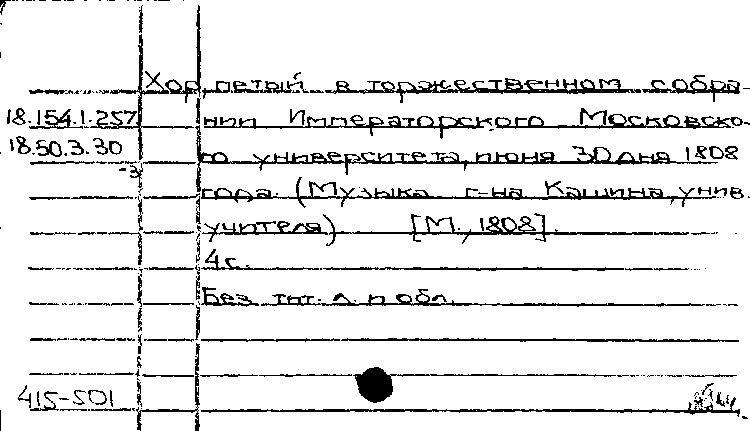 Хор, петый в торжественном собра-
18.154.1.257 нии Императорского Московско-
18.50.3.30 го университета, июня 30 дня 1808
-3 года. (Музыка г-на Кашина, унив.
учителя) [М., 1808].
4 с.
Без тит. л. и обл.
415-501